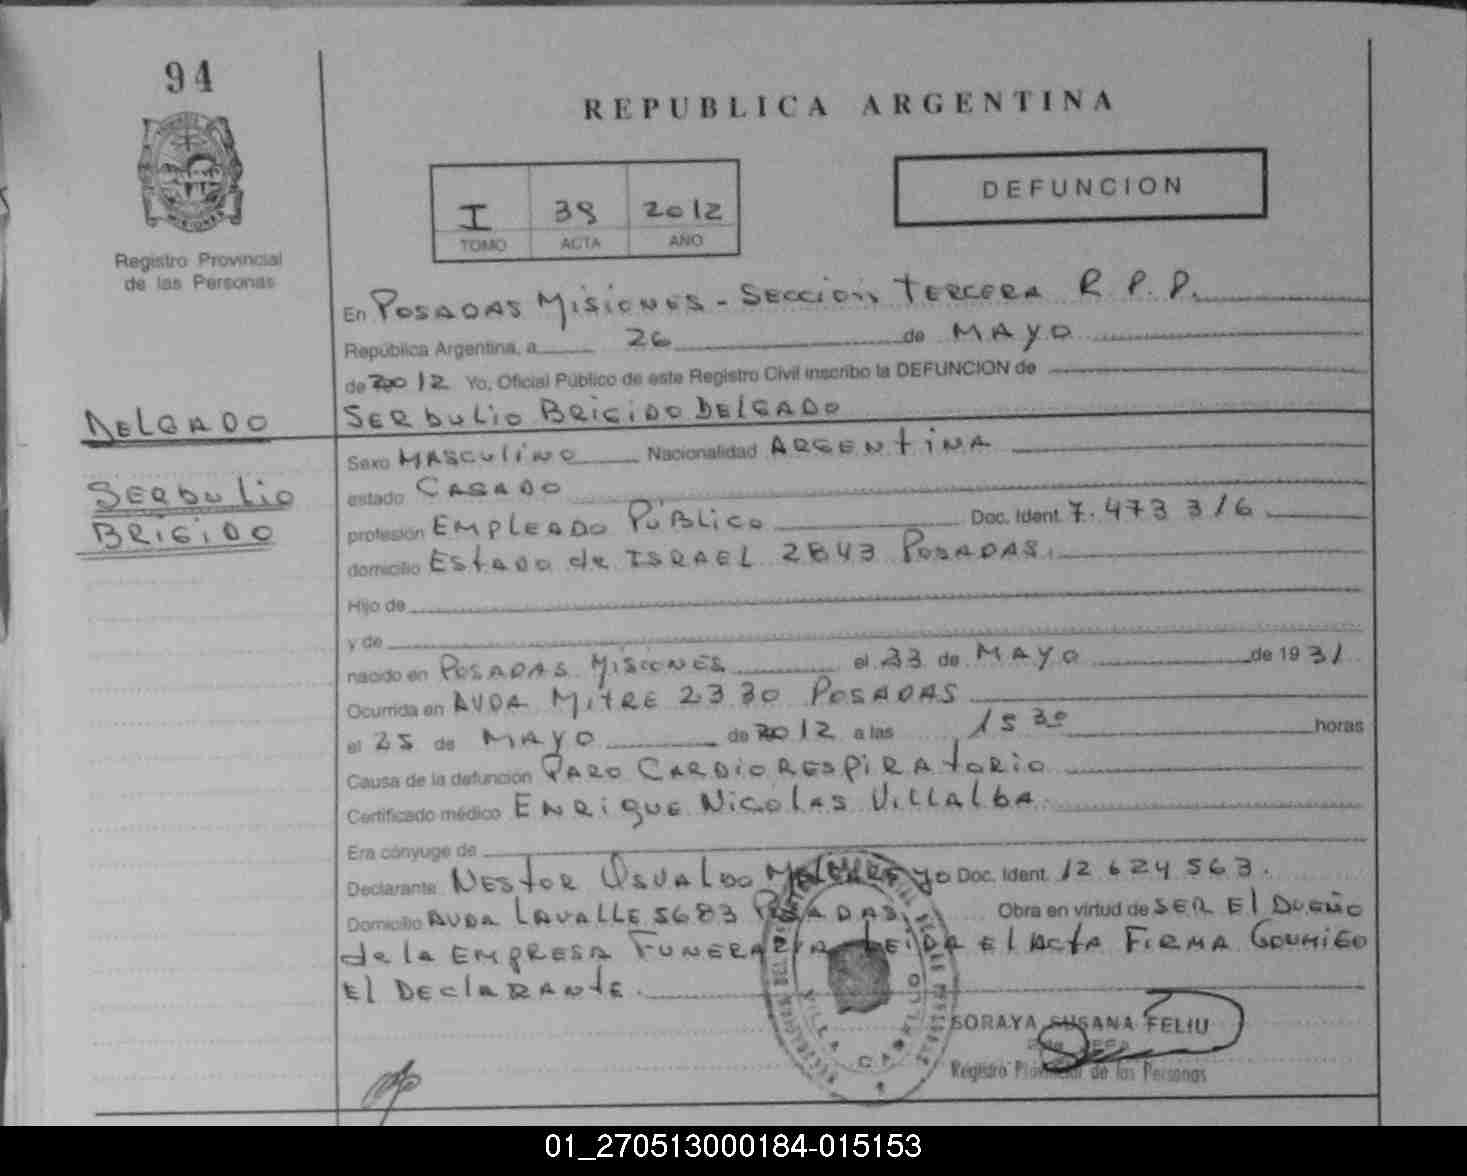 94
REPUBLICA ARGENTINA
DEFUNCION
I 39 2012
TOMO ACTA AÑO
Registro Provincial
de las Personas
En POSADAS MISIONES - SECCION TERCERA R. P. P.
República Argentina, a 26 de MAYO
de 2012 Yo, Oficial Público de este Registro Civil inscribo la DEFUNCION de
DELGADO
SERBULIO BRIGIDO DELGADO
Sexo MASCULINO Nacionalidad ARGENTINA
SERBULIO
BRIGIDO
estado CASADO
profesión EMPLEADO PUBLICO Doc. Ident. 7.473 316
domicilio ESTADO de ISRAEL 2843 POSADAS.
Hijo de
y de
nacido en POSADAS MISIONES el 23 de MAYO de 1931
Ocurrida en AVDA MITRE 2330 POSADAS
el 25 de MAYO de 2012 a las 15 30 horas
Causa de la defunción PARO CARDIORESPIRATORIO
Certificado médico ENRIQUE NICOLAS VILLALBA
Era cónyuge de
Declarante NESTOR OSVALDO Doc. Ident. 12 624 563.
Domicilio AVDA LAVALLE 5683 POSADAS. Obra en virtud de SER El DUEÑO
de la EMPRESA FUNERARIA LEIDA El ACTA FIRMA CONMIGO
El DEClARANTE.
VILLA CABELLO
SORAYA SUSANA FELIU
JEFA
Registro Provincial de las Personas
01_270513000184-015153